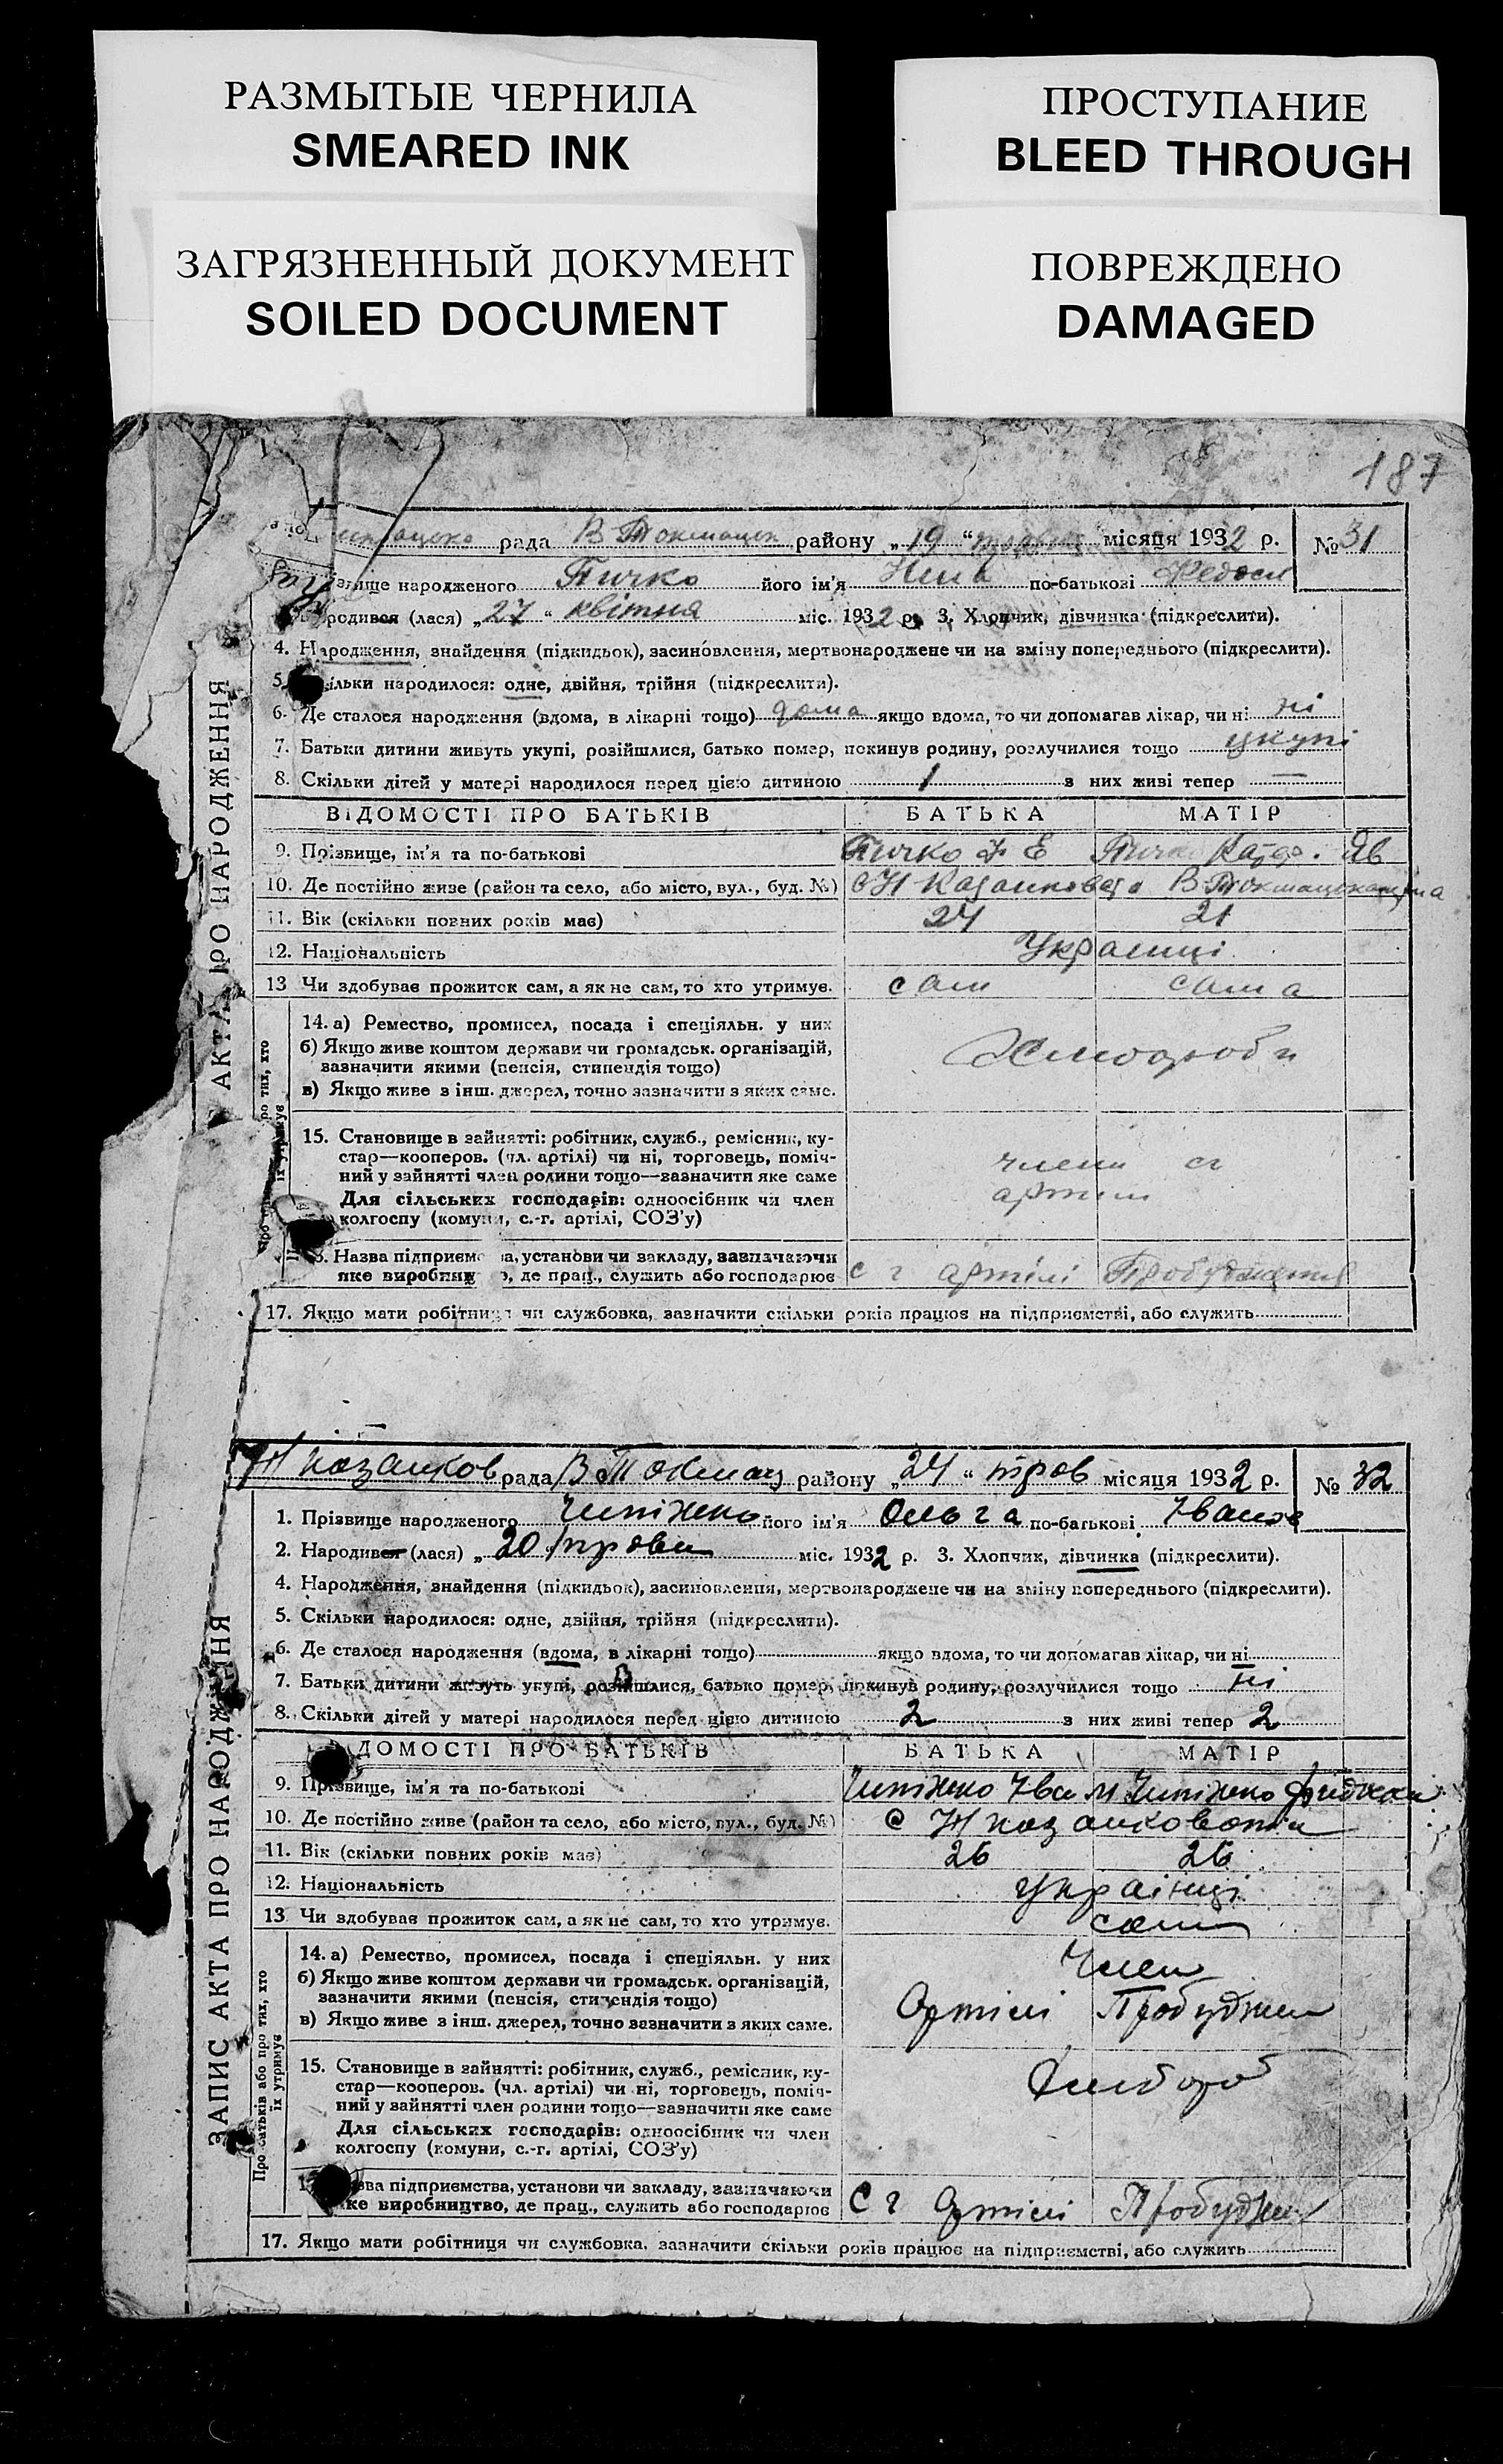 РАЗМЫТЫЕ ЧЕРНИЛА
SMEARED INK
ПРОСТУПАНИЕ
BLEED THROUGH
ЗАГРЯЗНЕННЫЙ ДОКУМЕНТ
SOILED DOCUMENT
ПОВРЕЖДЕНО
DAMAGED
187
рада В Токмацьк району „19“ місяця 1932 р. №31
народженого Пичко його ім'я Нина по-батькові Федосе
родився (лася) „27“ квітня міс. 1932 р. 3. Хлопчик, дівчинка (підкреслити).
4. Народження, знайдення (підкидьок), засиновлення, мертвонароджене чи на зміну попереднього (підкреслити).
5. Скільки народилося: одне, двійня, трійня (підкреслити).
6. Де сталося народження (вдома, в лікарні тощо) дома якщо вдома, то чи допомагав лікар, чи ні ні
7. Батьки дитини живуть укупі, розійшлися, батько помер, покинув родину, розлучилися тощо укупі
8. Скільки дітей у матері народилося перед цією дитиною 1 з них живі тепер —
ВІДОМОСТІ ПРО БАТЬКІВ БАТЬКА МАТІР
9. Прізвище, ім'я та по-батькові Пичко Ф Е Пичко Яв
10. Де постійно живе (район та село, або місто, вул., буд. №)
11. Вік (скільки повних років має) 24 21
12. Національність Украинці
13 Чи здобуває прожиток сам, а як не сам, то хто утримує. сам сама
14. а) Ремество, промисел, посада і спеціяльн. у них
б) Якщо живе коштом держави чи громадськ. організацій,
зазначити якими (пенсія, стипендія тощо)
в) Якщо живе з інш. джерел, точно зазначити з яких саме.
Хлиброби
15. Становище в зайнятті: робітник, служб., ремісник, ку-
стар—кооперов. (чл. артілі) чи ні, торговець, поміч-
ний у зайнятті член родини тощо—зазначити яке саме
Для сільських господарів: одноосібник чи член
колгоспу (комуни, с.-г. артілі, СОЗ'у)
члени сг
артили
Назва підприємства, установи чи закладу, зазначаючи
яке виробництво, де прац., служить або господарює с г артілі Пробуджения
17. Якщо мати робітниця чи службовка, зазначити скільки років працює на підприємстві, або служить
АКТА ПРО НАРОДЖЕННЯ
Н казанков рада В Токмац району „24“ трав місяця 1932 р. № 32
1. Прізвище народженого Чипіжко його ім'я Ольга по-батькові Іванов
2. Народився (лася) „20“ травн міс. 1932 р. 3. Хлопчик, дівчинка (підкреслити).
4. Народження, знайдення (підкидьок), засиновлення, мертвонароджене чи на зміну попереднього (підкреслити).
5. Скільки народилося: одне, двійня, трійня (підкреслити).
6. Де сталося народження (вдома, в лікарні тощо) якщо вдома, то чи допомагав лікар, чи ні
7. Батьки дитини живуть укупі, розійшлися, батько помер, покинув родину, розлучилися тощо ні
8. Скільки дітей у матері народилося перед цією дитиною 2 з них живі тепер 2
ВІДОМОСТІ ПРО БАТЬКІВ БАТЬКА МАТІР
9. Прізвище, ім'я та по-батькові Чипіжко Іва М Чипіжко
10. Де постійно живе (район та село, або місто, вул., буд. №) с Н казанковати
11. Вік (скільки повних років має) 26 26
12. Національність українці
13 Чи здобуває прожиток сам, а як не сам, то хто утримує. сами
14. а) Ремество, промисел, посада і спеціяльн. у них
б) Якщо живе коштом держави чи громадськ. організацій,
зазначити якими (пенсія, стипендія тощо)
в) Якщо живе з інш. джерел, точно зазначити з яких саме.
Член
Артілі Пробуджен
15. Становище в зайнятті: робітник, служб., ремісник, ку-
стар—кооперов. (чл. артілі) чи ні, торговець, поміч-
ний у зайнятті член родини тощо—зазначити яке саме
Для сільських господарів: одноосібник чи член
колгоспу (комуни, с.-г. артілі, СОЗ'у)
Назва підприємства, установи чи закладу, зазначаючи
яке виробництво, де прац., служить або господарює С г Артілі Пробуджен
17. Якщо мати робітниця чи службовка, зазначити скільки років працює на підприємстві, або служить
ЗАПИС АКТА ПРО НАРОДЖЕННЯ
Про батьків або про тих, хто
їх утримує